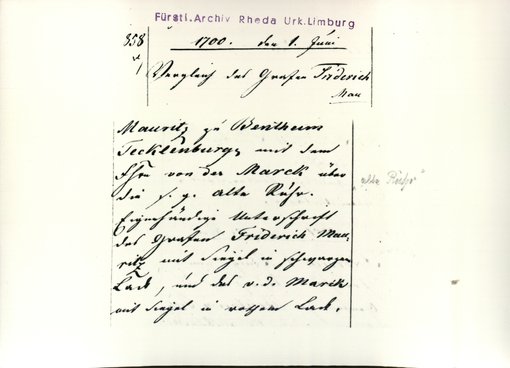 Fürstl. Archiv Rheda Urk. Limburg
358
1700. den 1. Juni
Vergleich des Grafen Friderich
Mau
Mauritz zu Bentheim
Tecklenburg, mit dem
Fhrn von der Marck über
die s. g. alte Ruhr.
Eigenhändige Unterschrift
des Grafen Friderich Mau-
ritz mit Siegel in schwarzem
Lack, und des v. d. Marck
mit Siegel in rothem Lack.
"alte Ruhr"